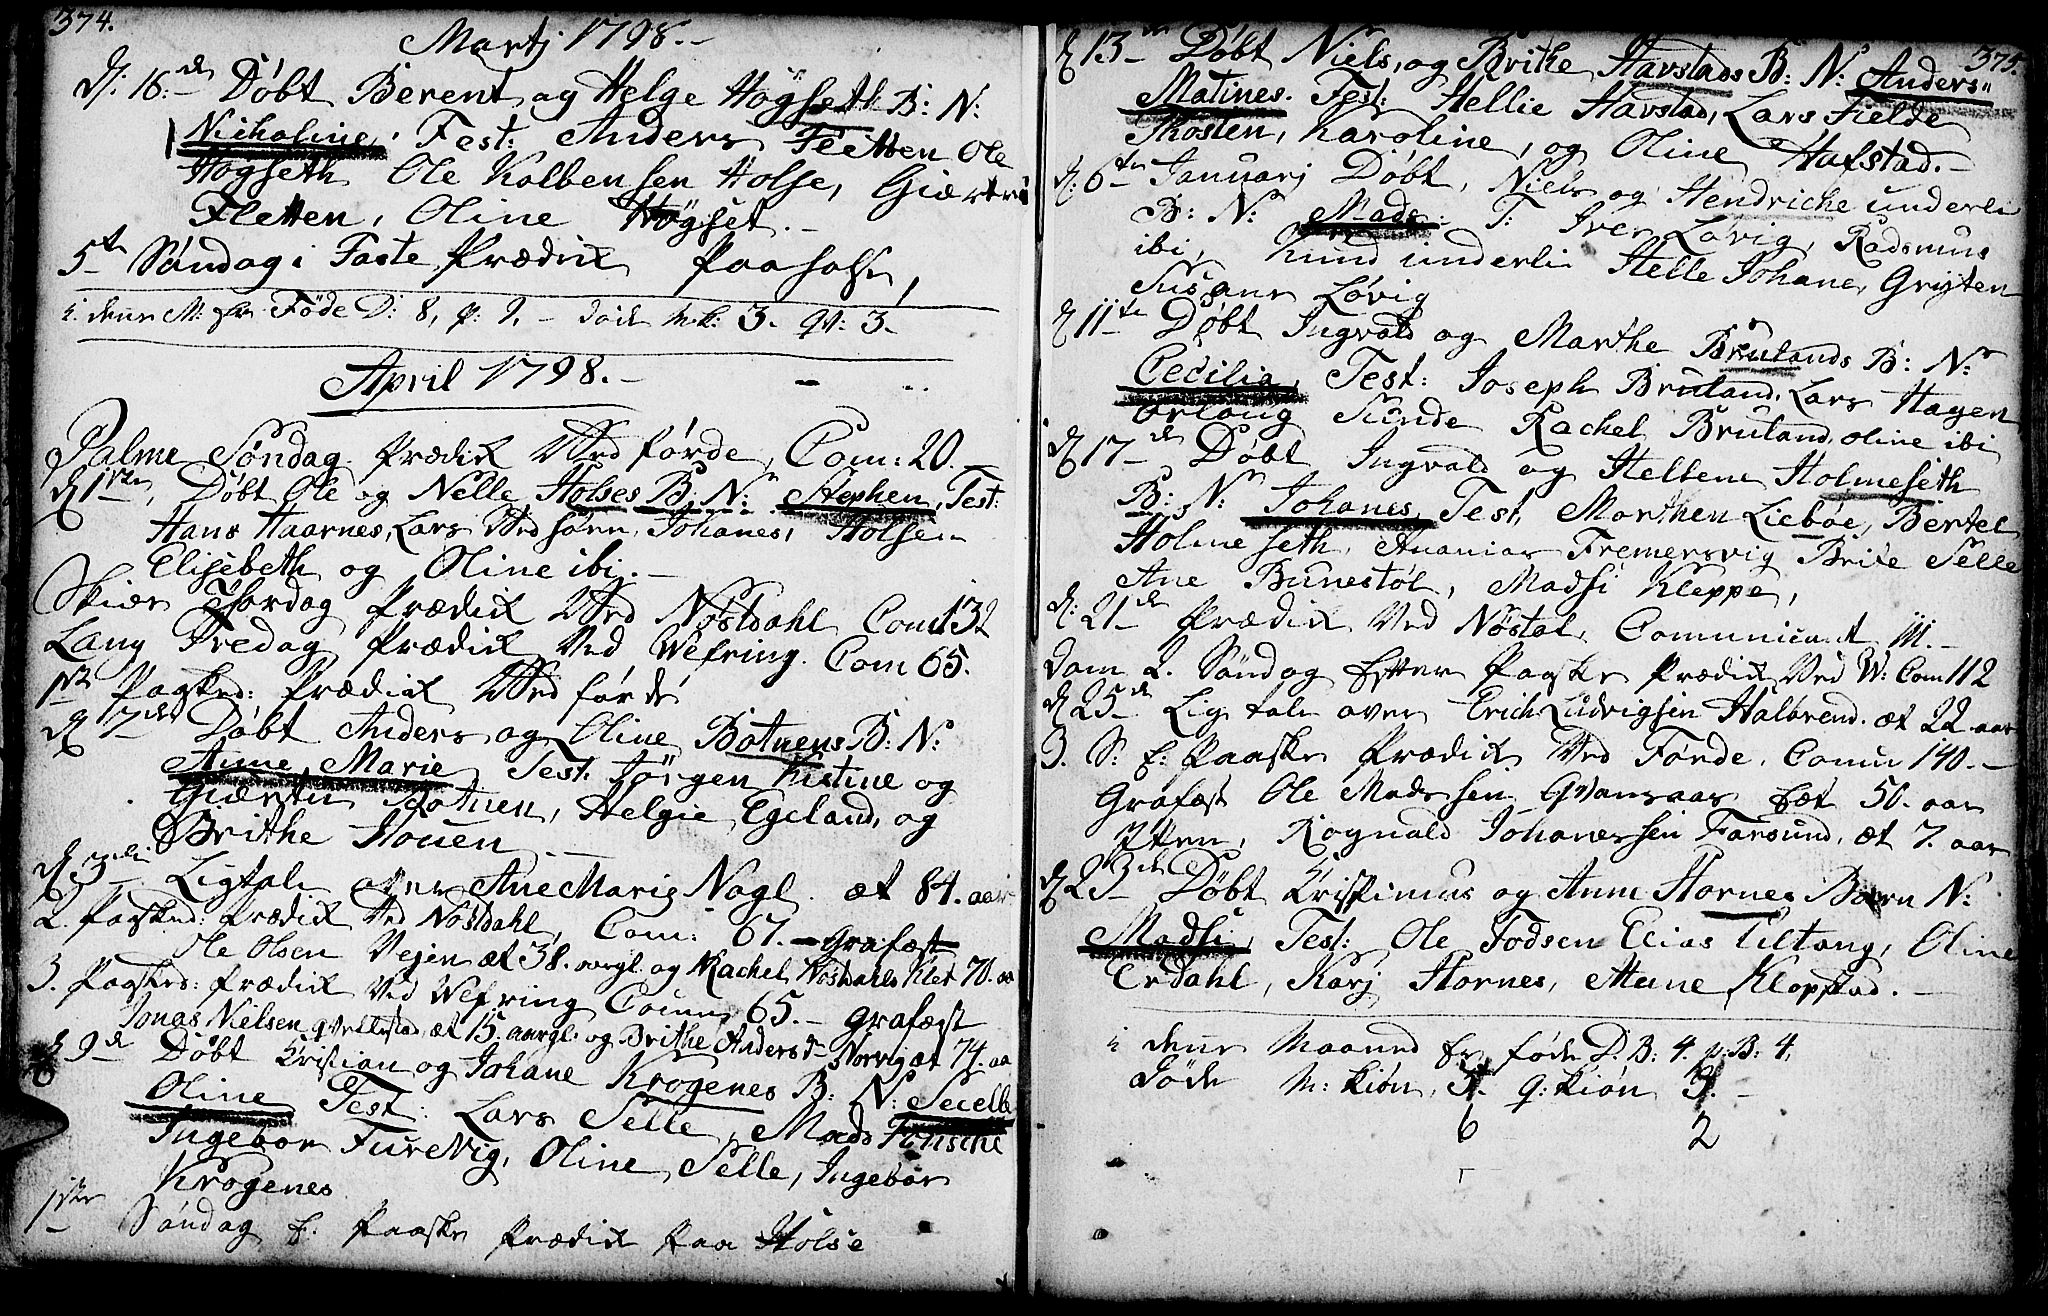 374.
Martj 1798.-
d: 16:de Døbt Berent og Helge Høgseth B: N:
Nicholine. Test: Anders Fletten Ole
Høgseth Ole Kolbensen Holse, Giærtru
Fletten, Oline Høgset.-
5te Søndag i Faste Prædik paa Holsen,
i denne M: er Føde D: 8, p: 9, - døde m.k: 3. qv: 3.
April 1798.-
Palme Søndag Prædik Ved førde, Com: 20.-
d 1ste, Døbt Ole og Nelle Holses B: N: Stephen, Test:
Hans Haarnes, Lars Ved søen, Johanes, Holsen
Elisebeth og Oline ibj.-
Skiær Thorsdag Prædik Ved Nøstdahl Com 132
Lang Fredag Prædik Ved Wefring. Com 65.
1ste Paasked: Prædik Ved førde
d 7de Døbt Anders og Oline Botnens B: N:
Anne Marie Test: Jörgen Kistine og
Giærtru Botnen, Helgie Egeland, og
Brithe Houen
d: 3die Ligtale over Ane Marie Nagl. æt 84. aar
2. Paasked: Prædik Ved Nøstdahl, Com: 67. - Grafæst
Ole Olsen Vejen æt 38. aargl. og Rachel Nøstdahls Klet 70. aa
3. Paasked: Prædik Ved Wefring Comu 65.- Grafæst
Jonas Nielsen qvellestad, æt 15. aargl. og Brithe Anders d- Norvig æt 74. aa
d 9de Døbt Kristian og Johane Krogenes B: N: Secelle
Oline Test: Lars Selle, Mads
Ingebor Furevig, Oline Selle, Ingebor
Krogenes
1ste Søndag E: Paaske Prædik Paa Holse
375.
d 13de Døbt Niels, og Brithe Harstads B: N: Anders"
Matines. Test: Hellie Harstad, Lars Fielde
Thosten, Karoline, og Oline Hafstad.-
d: 6te Januarj Døbt, Niels og Hendriche underli
B: N: Mads. T: Iver Løvig, Radsmus
ibi, Knud underli Helle Johane, Gryten
Susane Løvig
d 11te Døbt Ingvald og Marthe Brulands B: N:
Cecilia, Test: Joseph Bruland, Lars Hagen
Erlang Sunde Rachel Bruland, oline ibi
d 17de Døbt Ingvald og Hellene Holmeseth
B: N: Johanes, Test, Marthen Liebøe, Bertel
Holme seth, Ananias Fremersvig Brite Selle
Ane Bunestøl, Madsi Kleppe,
d: 21de Prædik Ved Nøstal, Comunicent 111.-
Dom 2. Søndag Efter Paaske Prædik Ved W: Com 112
d 25de Lig tale over Erich Ludvigsen Halbrend. æt 22 aar
3. S: E: Paaske Prædik Ved Førde, Comu 140.-
Grafæst Ole Madssen æt 50. aar
Rognald Johanessen Farsund, æt 7. aar
d 23de Døbt Kristimus og Anne Hornes Barn N:
Madsi, Test: Ole Fodsen Elias Tiltang, Oline
Erdahl, Karj Hornes, Anne Klopstad.-
i denne Maaned er føde D. B: 4. p: B: 4.
Døde M: kiøn, 5. q: kiøn 3.-
6 2